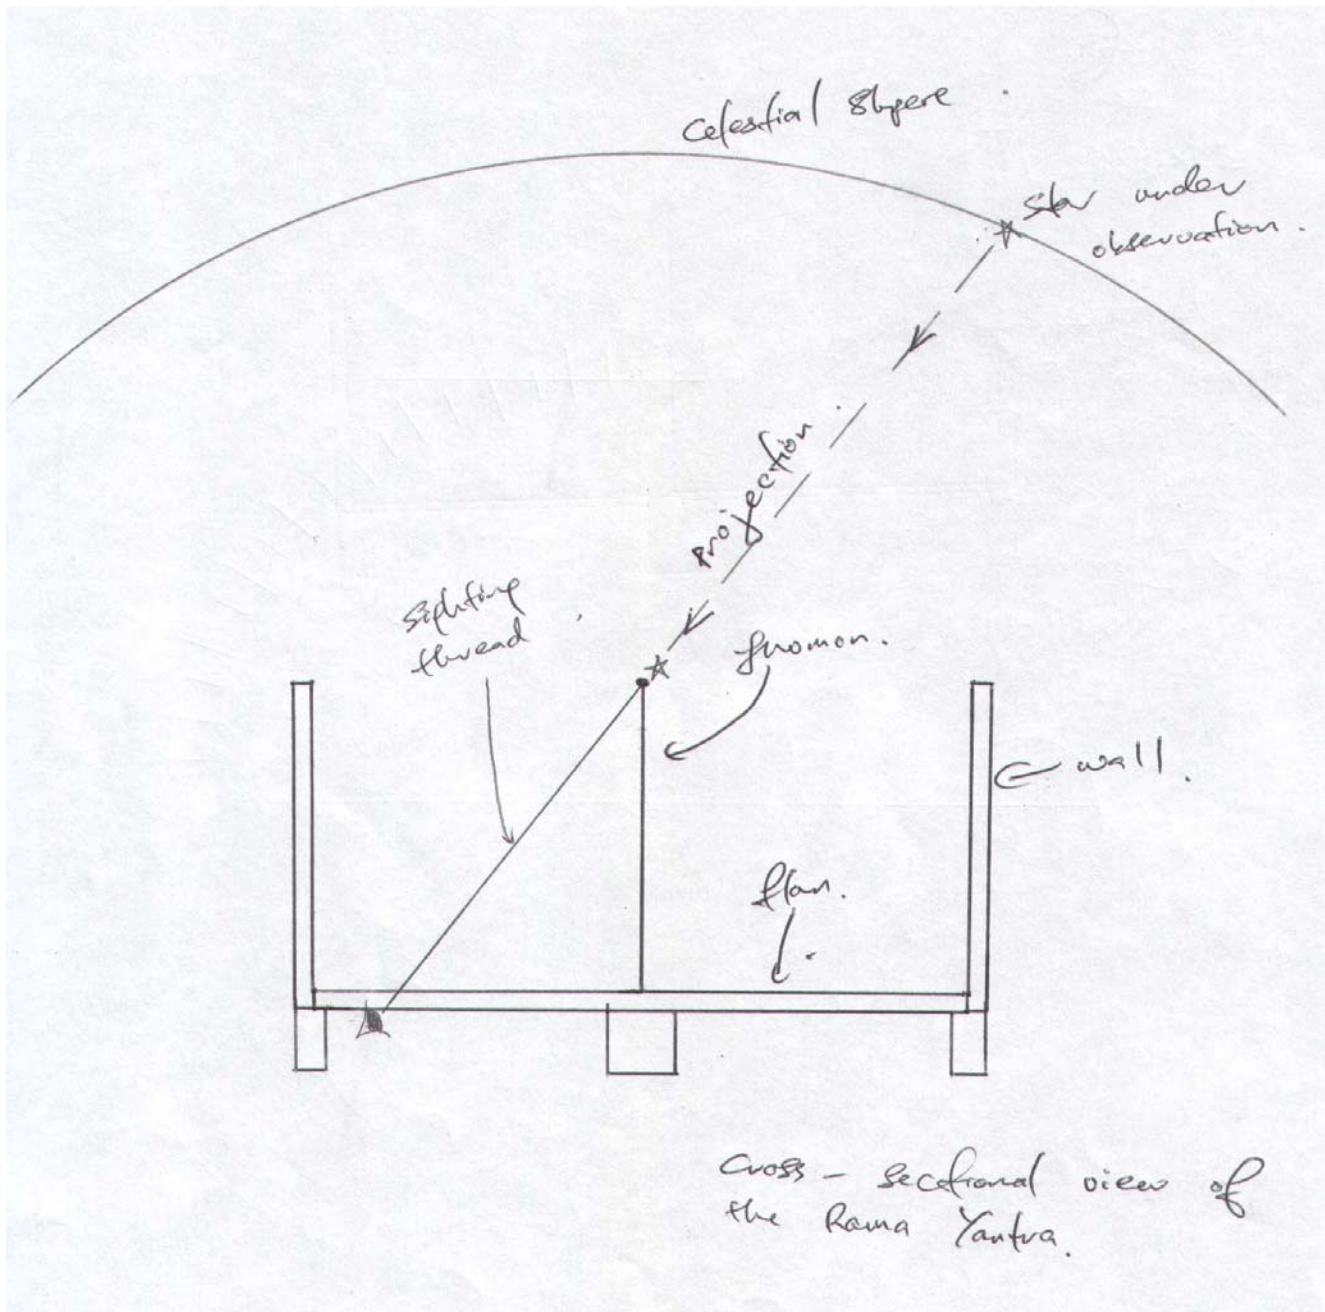 Celestial Shpere.
Star under
observation.
projection.
sighting
thread
gnomon.
wall.
flan.
Cross - sectional view of
the Rama Yantra.